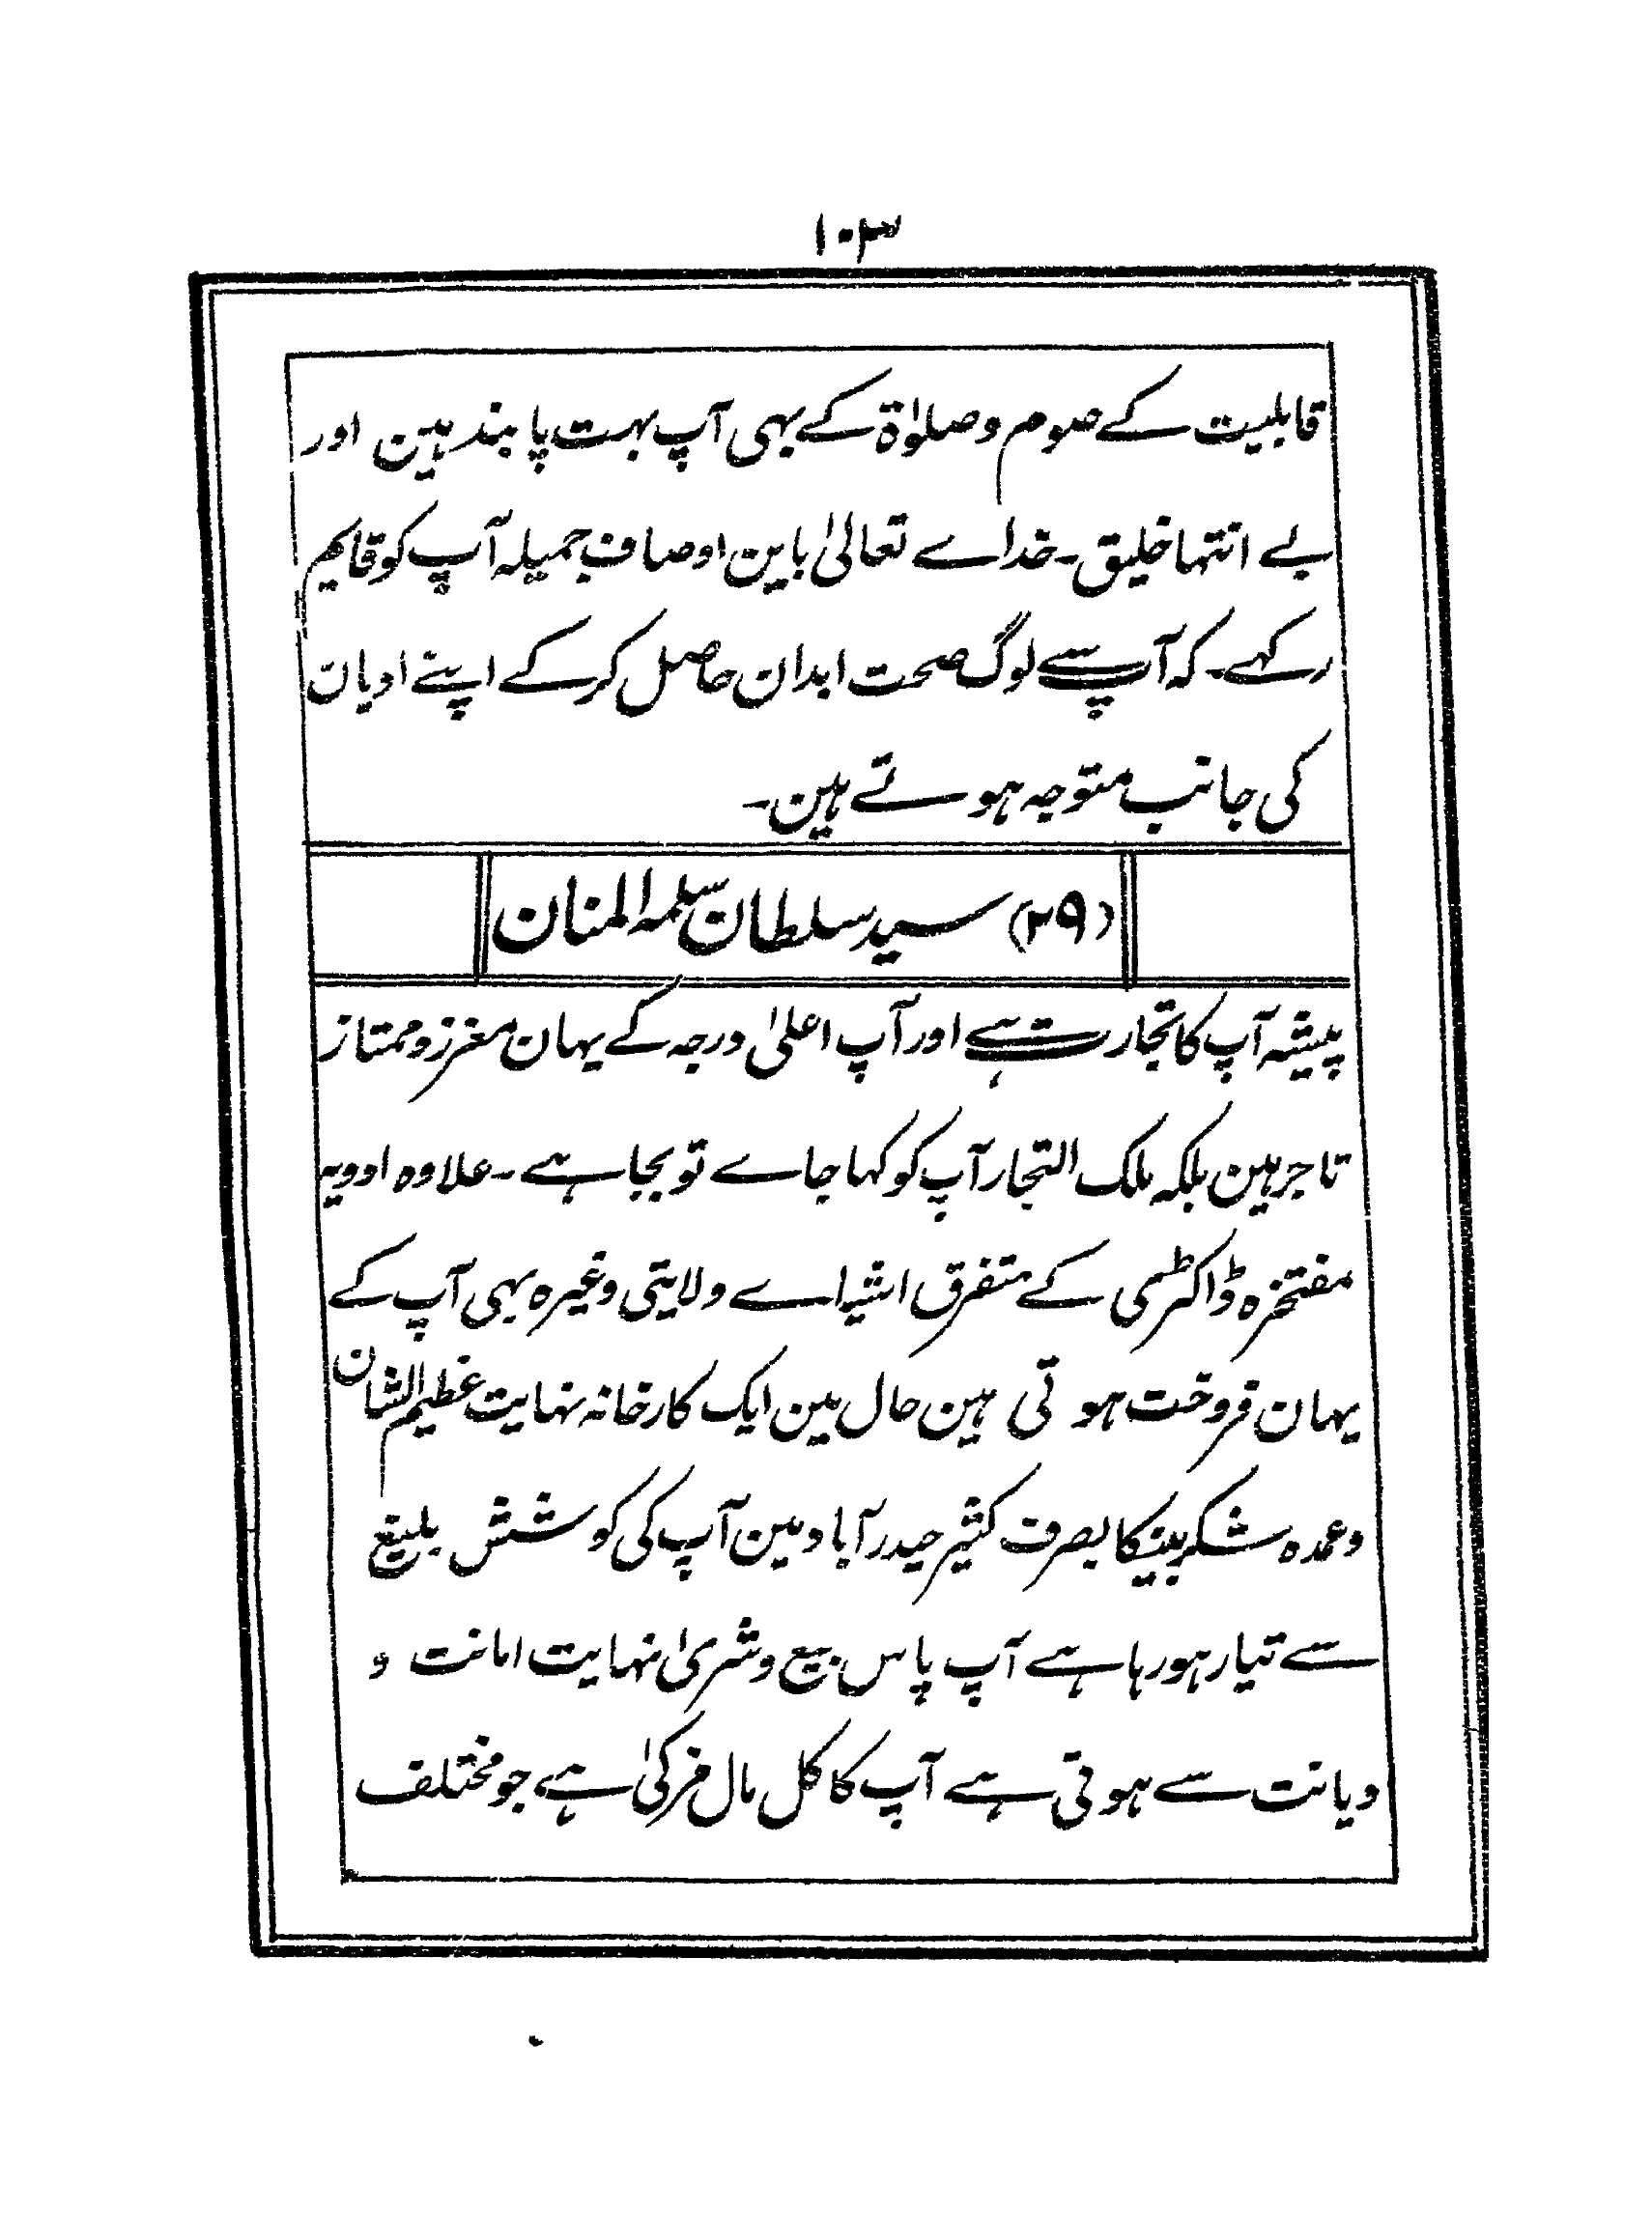 ۱۰۳
قابلیت کے صوم و صلوٰة کے بہی آپ بہت پابند ہین اور
بے انتہا خلیق۔ خداے تعالیٰ باین اوصاف جمیلہ آپ کو قایم
رکہے۔ کہ آپ سے لوگ صحت ابدان حاصل کر کے اپنے ادیان
کی جانب متوجہ ہوتے ہین۔
(۲۹) سید سلطان سلمہ المنان
پیشہ آپ کا تجارت ہے اور آپ اعلیٰ درجہ کے یہان معزز و ممتاز
تاجر ہین بلکہ ملک التجار آپ کو کہا جاے تو بجا ہے۔ علاوہ ادویہ
مفتخرہ ڈاکٹری کے متفرق اشیاے ولایتی وغیرہ بہی آپ کے
یہان فروخت ہوتی ہین حال مین ایک کارخانہ نہایت عظیم الشان
و عمدہ شکر بینیکا بصرف کثیر حیدرآباد مین آپ کی کوشش بلیغ
سے تیار ہو رہا ہے آپ پاس بیع و شریٰ نہایت امانت و
دیانت سے ہوتی ہے آپ کا کل مال مزکیٰ ہے جو مختلف